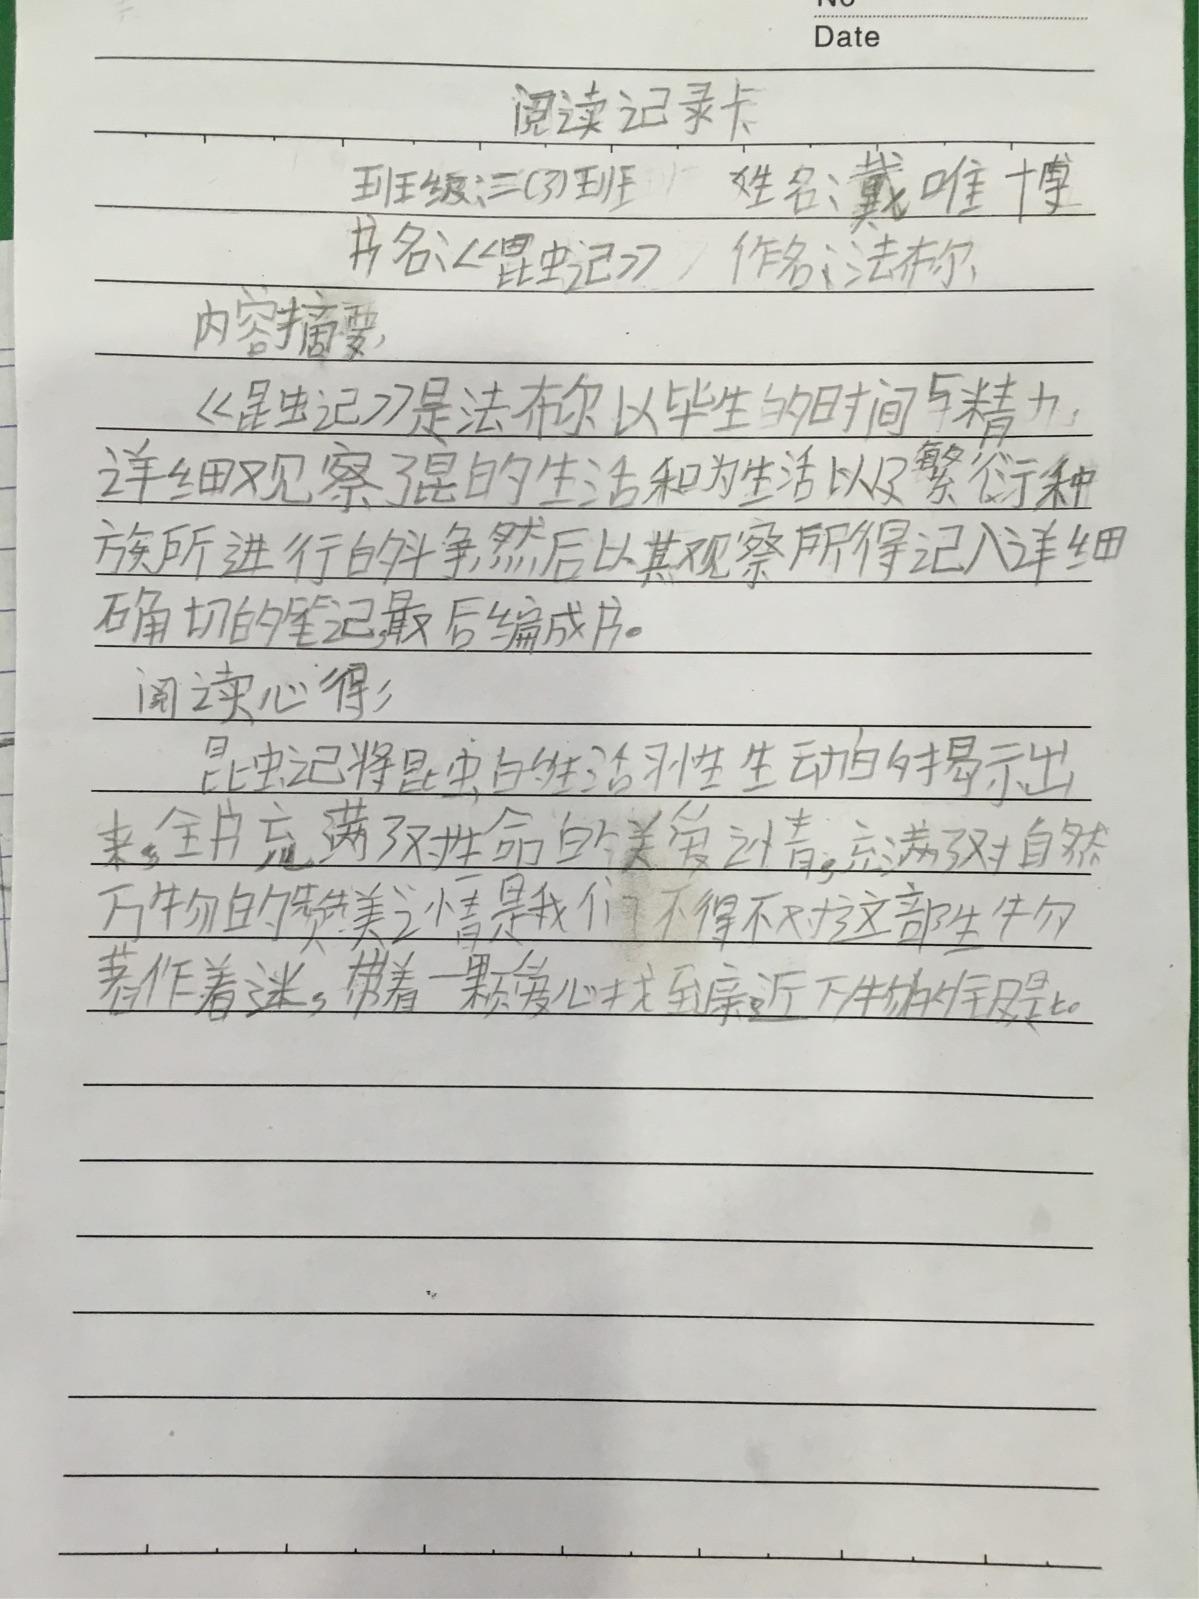 No
Date
阅读记录卡
班级:三(3)班 姓名:戴唯博
书名:《昆虫记》 作名:法布尔
内容摘要,
《昆虫记》是法布尔以毕生的时间与精力,
详细观察了昆的生活和为生活以及繁衍种
族所进行的斗争,然后以其观察所得记入详细
确切的笔记,最后编成书。
阅读心得,
昆虫记将昆虫的生活习性生动的揭示出
来,全书充满了对性命的关爱之情,充满了对自然
万物的赞美之情是我们不得不对这部生物
著作着迷,带着一颗爱心找到亲近万物的